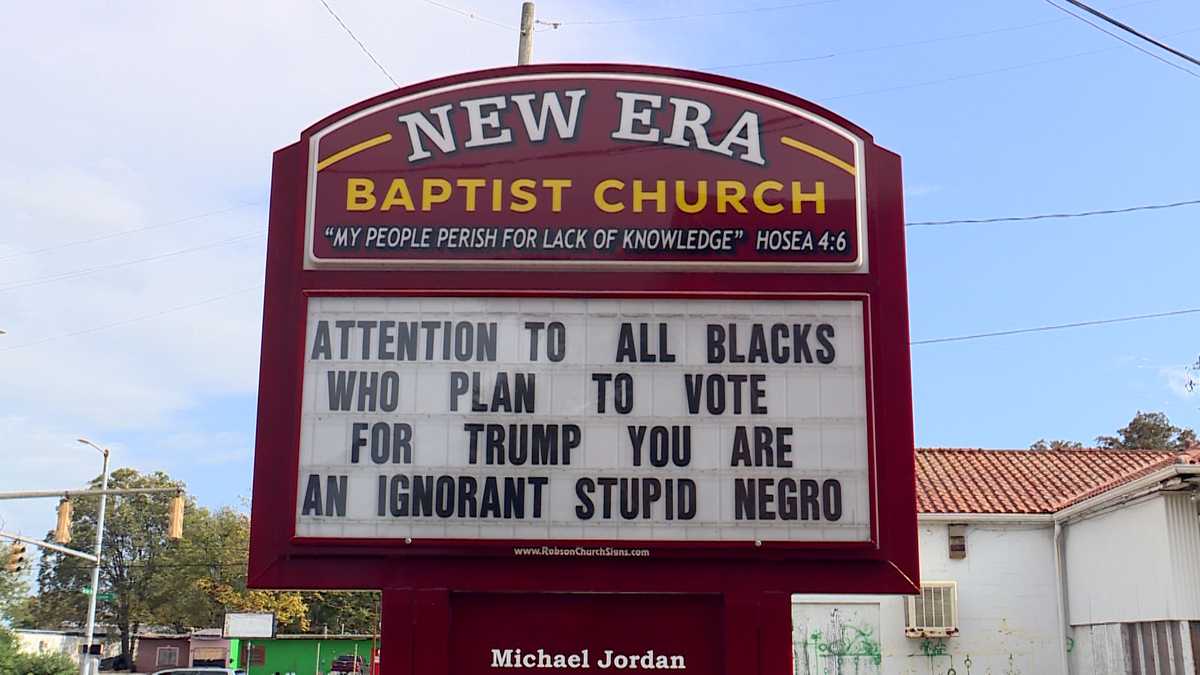 NEW ERA
BAPTIST CHURCH
"MY PEOPLE PERISH FOR LACK OF KNOWLEDGE" HOSEA 4:6
ATTENTION TO ALL BLACKS
WHO PLAN TO VOTE
FOR TRUMP YOU ARE
AN IGNORANT STUPID NEGRO
www.RobsonChurchSigns.com
Michael Jordan